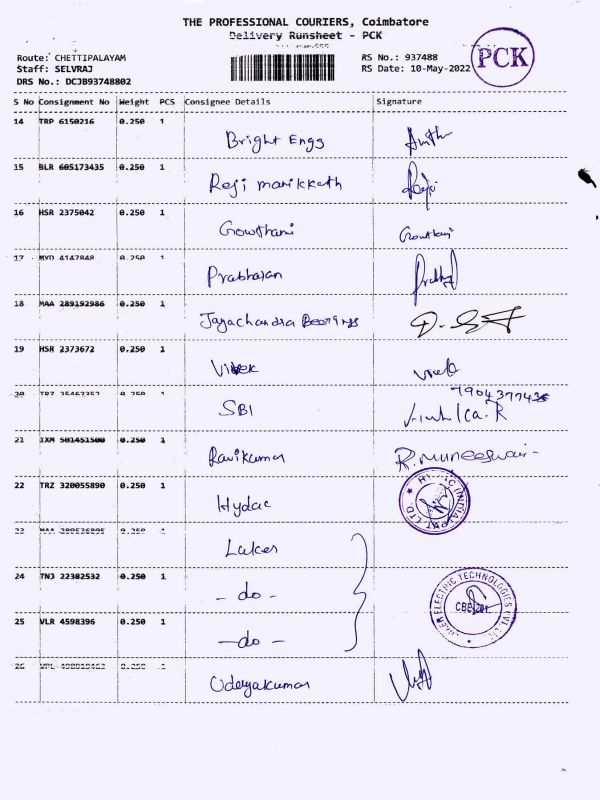 THE PROFESSIONAL COURIERS, Coimbatore
Delivery Runsheet - PCK
Route: CHETTIPALAYAM
RS No.: 937488
PCK
Staff: SELVRAJ
RS Date: 10-May-2022
DRS No.: DCJB93748802
S No Consignment No Weight PCS Consignee Details Signature
14 TRP 6150216 0.250 1
Bright Engg
15 BLR 605173435 0.250 1
Reji manikkath
16 HSR 2375042 0.250 1
Gowthami
17 0.250 1
Prabharan
18 MAA 289192986 0.250 1
Jayachandra Bearings
19 HSR 2373672 0.250 1
Vivek
20 0.250 1
SBI
21 IXM 501451500 0.250 1
Ravikumar R. Muneeswari
22 TRZ 320055890 0.250 1
Hydac
23 0.250 1
Luker
24 TNJ 22382532 0.250 1
- do -
25 VLR 4598396 0.250 1
- do -
26 0.250 1
Udayakumar